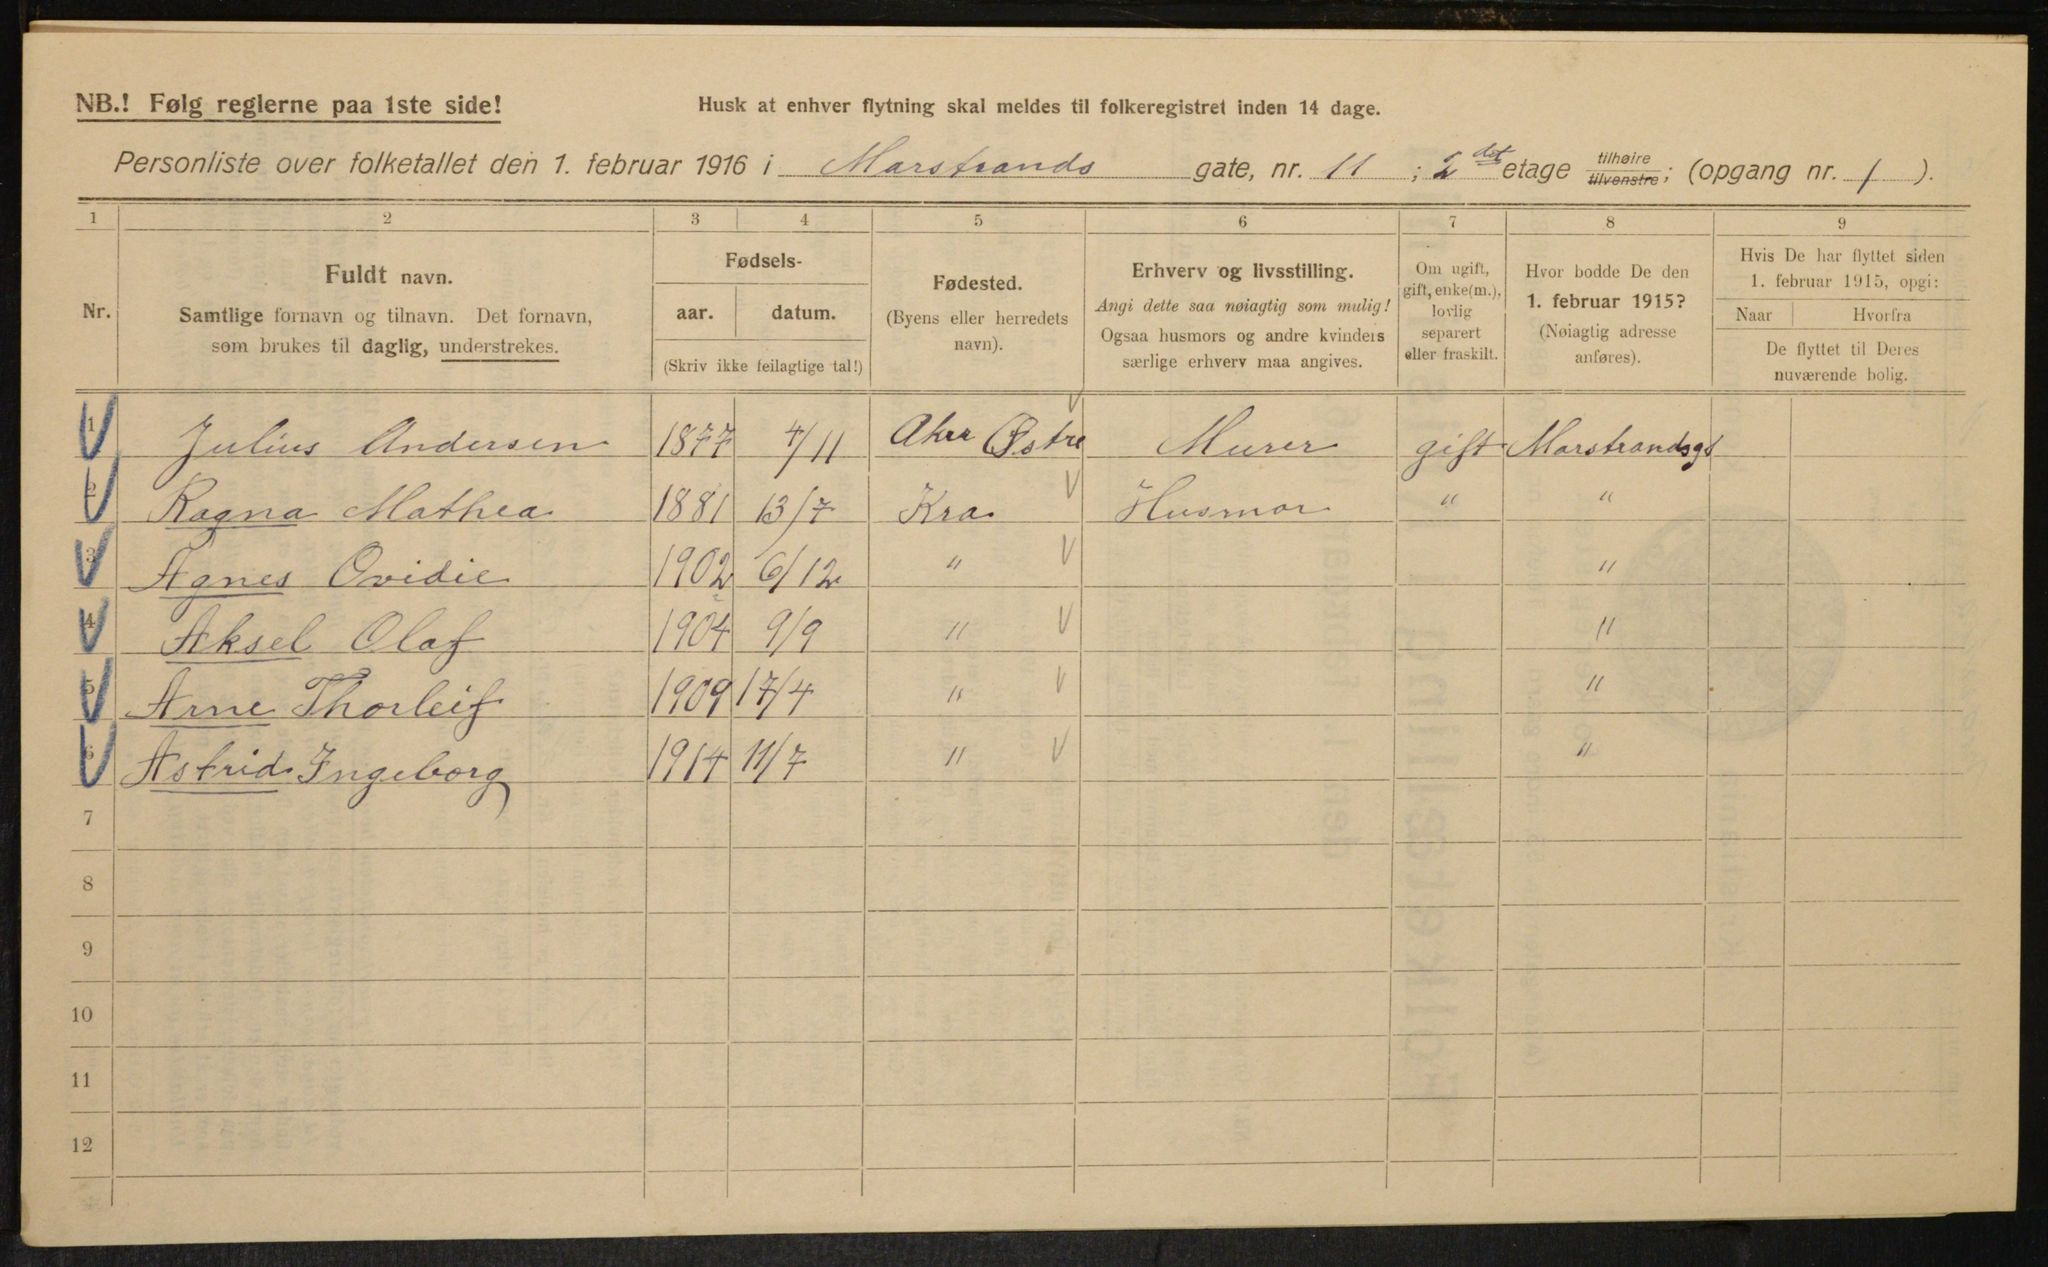 NB.! Følg reglerne paa 1ste side!
Husk at enhver flytning skal meldes til folkeregistret inden 14 dage.
Personliste over folketallet den 1. februar 1916 i Marstrands gate, nr. 11 ; 2 det etage tilhøire tilvenstre; (opgang nr. 1 ).
1 2 3 4 5 6 7 8 9
Nr.
Fuldt navn.
Samtlige fornavn og tilnavn. Det fornavn,
som brukes til daglig, understrekes.
Fødsels-
aar. datum.
(Skriv ikke feilagtige tal!)
Fødested.
(Byens eller herredets
navn).
Erhverv og livsstilling.
Angi dette saa nøiagtig som mulig!
Ogsaa husmors og andre kvinders
særlige erhverv maa angives.
Om ugift,
gift, enke(m.),
lovlig
separert
eller fraskilt.
Hvor bodde De den
1. februar 1915?
(Nøiagtig adresse
anføres).
Hvis De har flyttet siden
1. februar 1915, opgi:
Naar Hvorfra
De flyttet til Deres
nuværende bolig.
1 Julius Andersen 1877 4/11 Aker Østre Murer gift Marstrandsgt
2 Ragna Mathea 1881 13/7 Kra. Husmor " "
3 Agnes Ovidie 1902 6/12 " "
4 Aksel Olaf 1904 9/9 " "
5 Arne Thorleif 1909 17/4 " "
6 Astrid Ingeborg 1914 11/7 " "
7
8
9
10
11
12